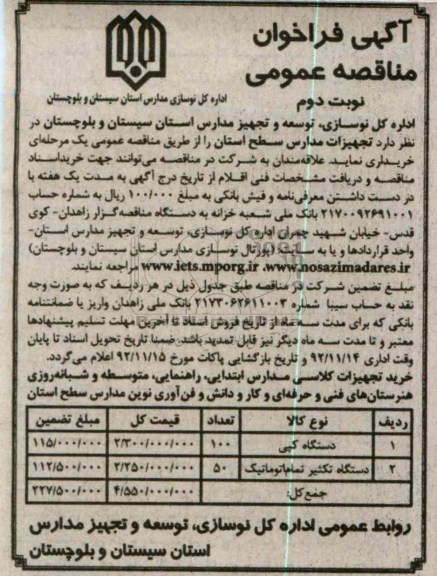 آگهی فراخوان
مناقصه عمومی
نوبت دوم
اداره کل نوسازی مدارس استان سیستان و بلوچستان
اداره کل نوسازی، توسعه و تجهیز مدارس استان سیستان و بلوچستان در
نظر دارد تجهیزات مدارس سطح استان را از طریق مناقصه عمومی یک مرحله‌ای
خریداری نماید. علاقه‌مندان به شرکت در مناقصه می‌توانند جهت خرید اسناد
مناقصه و دریافت مشخصات فنی اقلام از تاریخ درج آگهی به مدت یک هفته با
در دست داشتن معرفی‌نامه و فیش بانکی به مبلغ ۱۰۰/۰۰۰ ریال به شماره حساب
۲۱۷۰۰۹۲۶۹۱۰۰۱ بانک ملی شعبه خزانه به دستگاه مناقصه‌گزار زاهدان- کوی
قدس- خیابان شهید چمران اداره کل نوسازی، توسعه و تجهیز مدارس استان-
واحد قراردادها و یا به سایت (پورتال نوسازی مدارس استان سیستان و بلوچستان)
www.iets.mporg.ir ،www.nosazimadares.ir مراجعه نمایند.
مبلغ تضمین شرکت در مناقصه طبق جدول ذیل در هر ردیف که به صورت وجه
نقد به حساب سیبا شماره ۲۱۷۳۰۶۲۶۱۱۰۰۳ بانک ملی زاهدان واریز یا ضمانتنامه
بانکی که برای مدت سه ماه از تاریخ فروش اسناد تا آخرین مهلت تسلیم پیشنهادها
معتبر و تا مدت سه ماه دیگر نیز قابل تمدید باشد. ضمنا تاریخ تحویل اسناد تا پایان
وقت اداری ۹۲/۱۱/۱۴ و تاریخ بازگشایی پاکات مورخ ۹۲/۱۱/۱۵ اعلام می‌گردد.
خرید تجهیزات کلاسی مدارس ابتدایی، راهنمایی، متوسطه و شبانه‌روزی
هنرستان‌های فنی و حرفه‌ای و کار و دانش و فن‌آوری نوین مدارس سطح استان
ردیف نوع کالا تعداد قیمت کل مبلغ تضمین
۱ دستگاه کپی ۱۰۰ ۲/۳۰۰/۰۰۰/۰۰۰ ۱۱۵/۰۰۰/۰۰۰
۲ دستگاه تکثیر تمام‌اتوماتیک ۵۰ ۲/۲۵۰/۰۰۰/۰۰۰ ۱۱۲/۵۰۰/۰۰۰
جمع کل: ۴/۵۵۰/۰۰۰/۰۰۰ ۲۲۷/۵۰۰/۰۰۰
روابط عمومی اداره کل نوسازی، توسعه و تجهیز مدارس
استان سیستان و بلوچستان